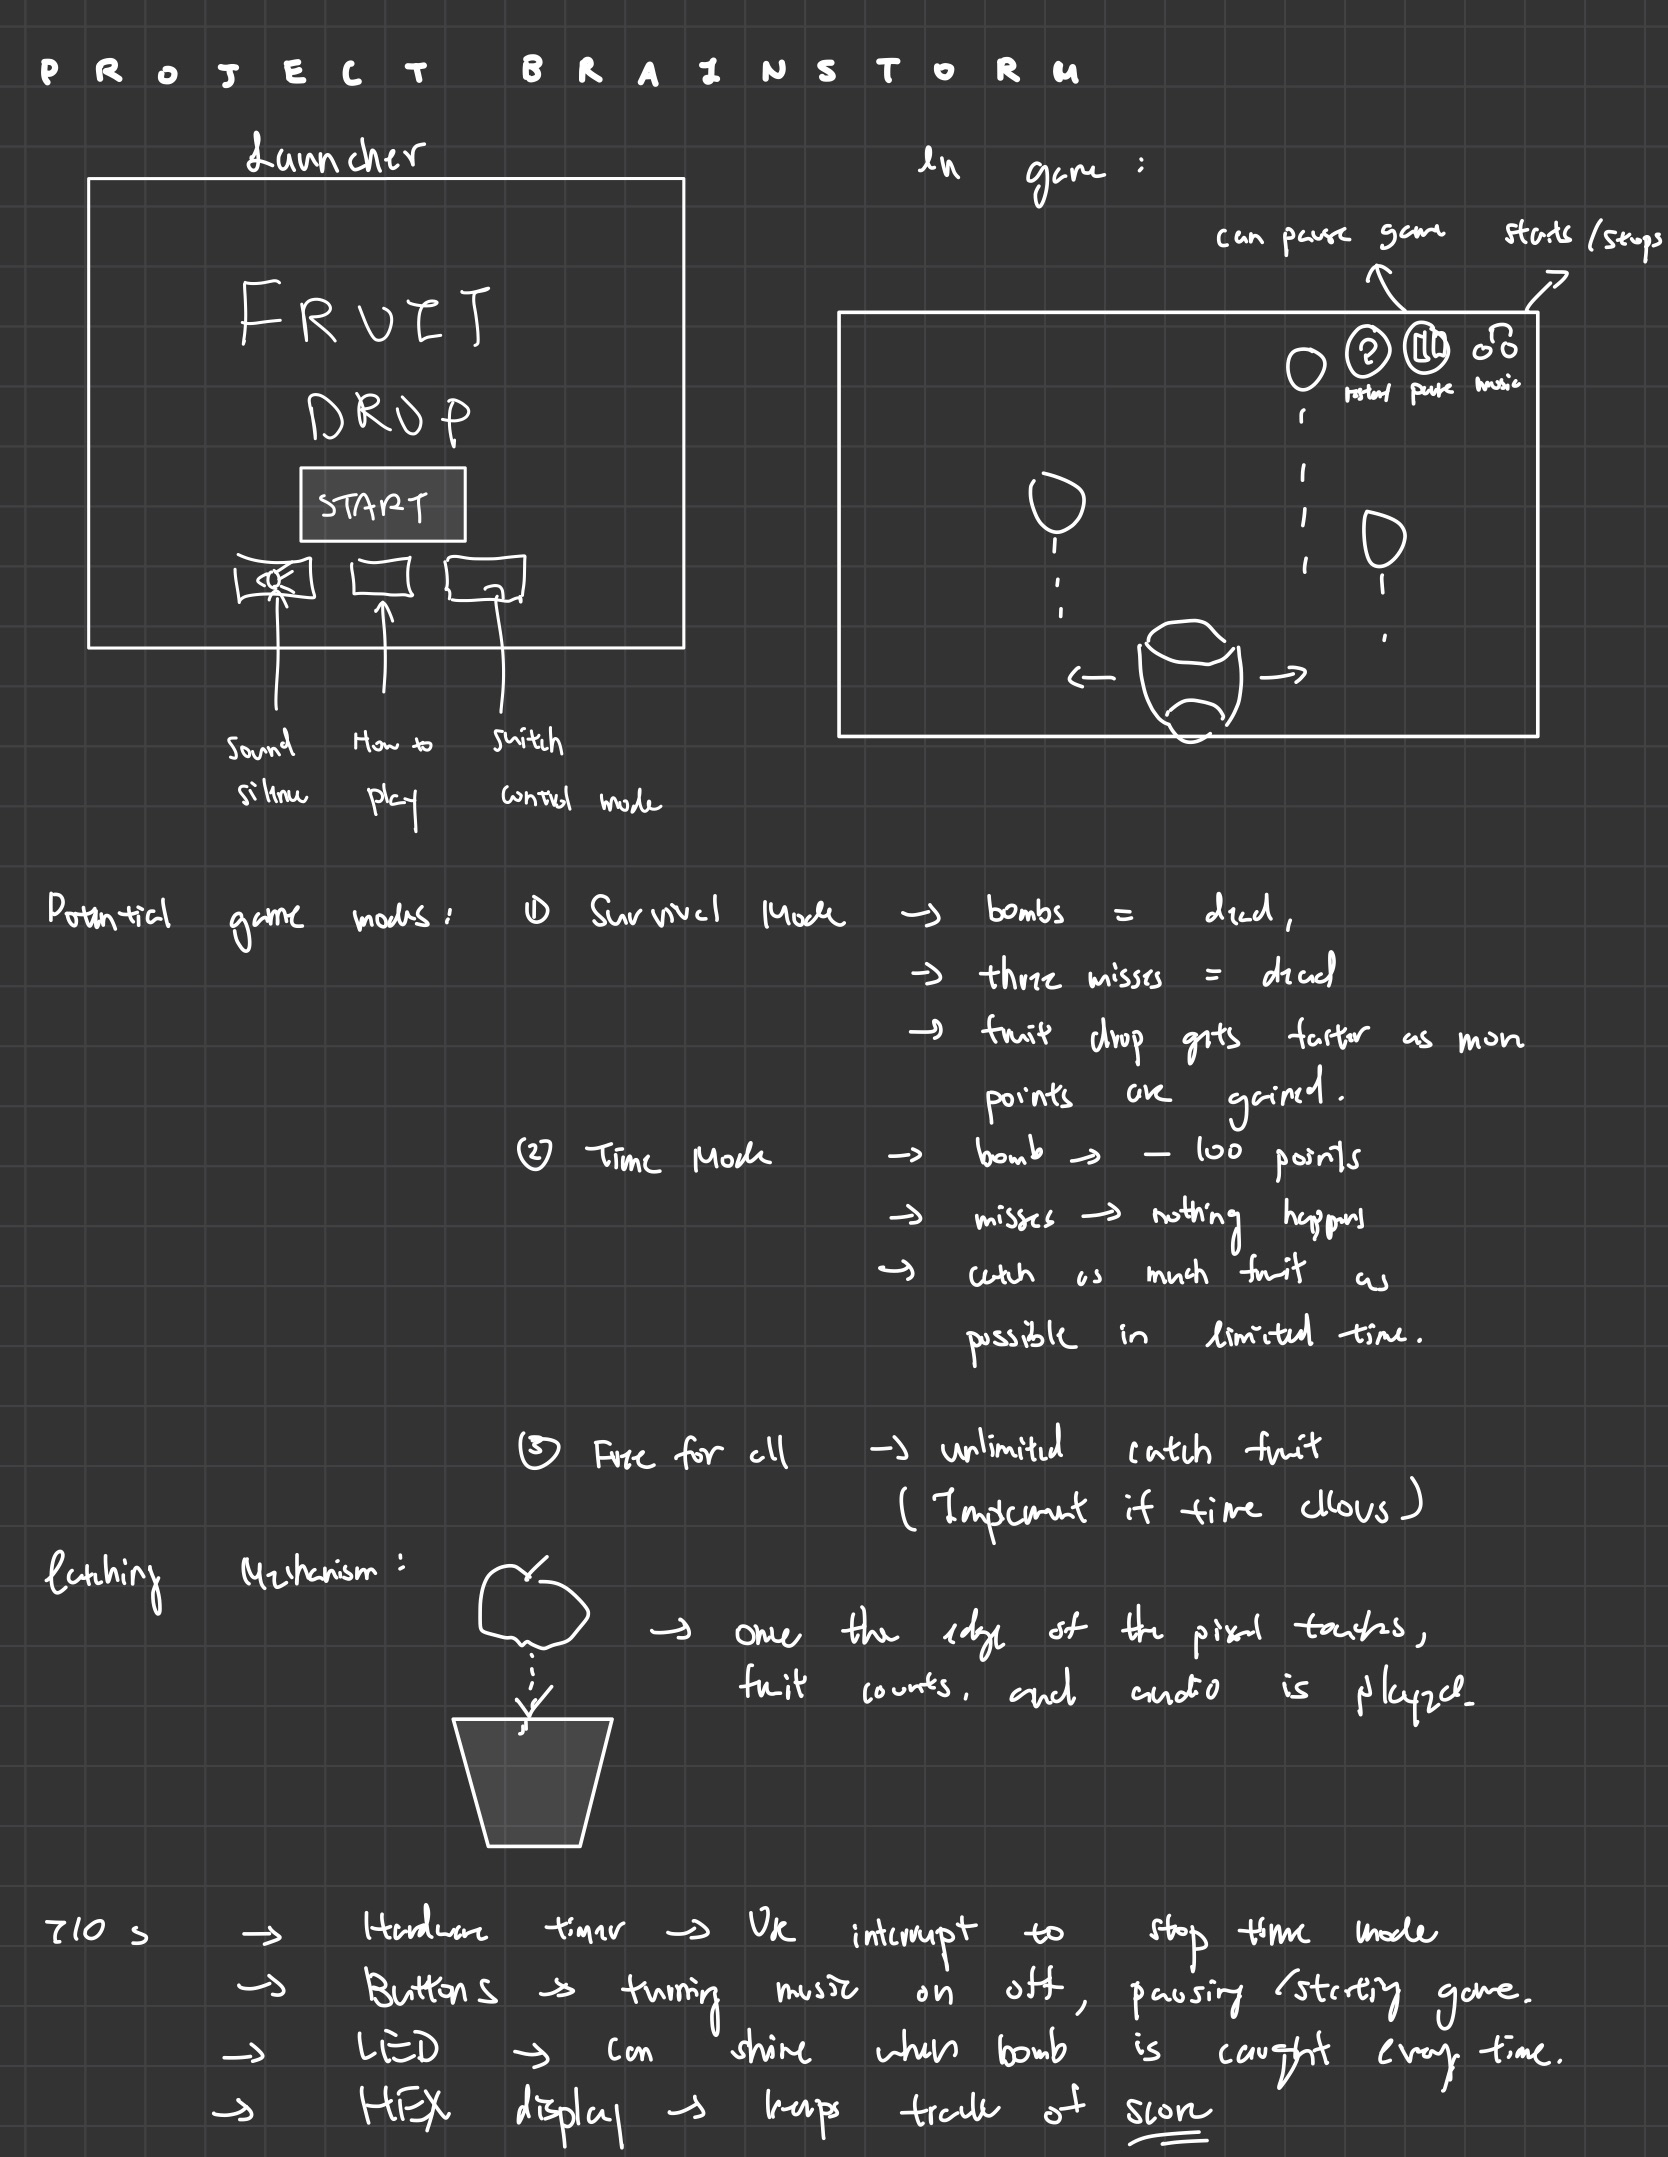 PROJECT BRAINSTORM
Launcher
FRUIT
DROP
START
Sound
silence
How to
play
switch
control mode
In game:
can pause game
starts/stops
restart
pause
music
Potential game modes: ① Survival Mode → bombs = dead,
→ three misses = dead
→ fruit drop gets faster as more
points are gained.
② Time Mode → bomb → - 100 points
→ misses → nothing happens
→ catch as much fruit as
possible in limited time.
③ Free for all → unlimited catch fruit
(Implement if time allows)
Catching Mechanism:
→ once the edge of the pixel touches,
fruit counts, and audio is played.
I/O s → Hardware timer → Use interrupt to stop time mode
→ Buttons → turning music on off, pausing/starting game.
→ LED → can shine when bomb is caught every time.
→ HEX display → keeps track of score